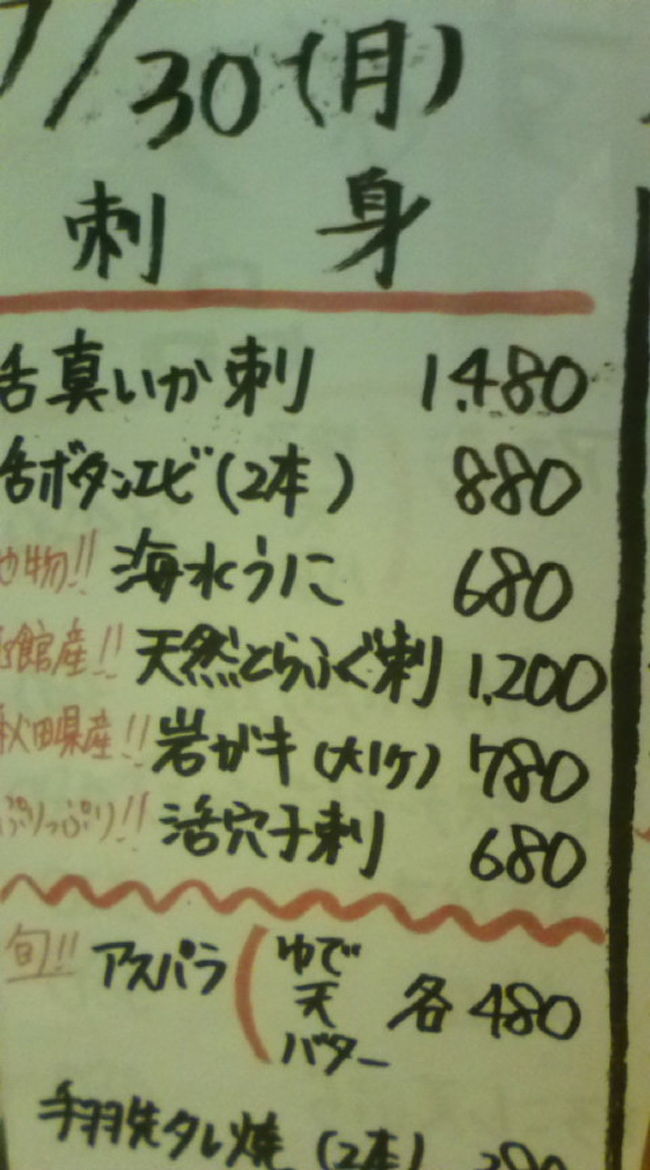 7/30(月)
刺身
活真いか刺 1,480
活ボタンエビ(2本) 880
物!! 海水うに 680
函館産!! 天然とらふぐ刺 1,200
秋田県産!! 岩ガキ(大1ケ) 780
ぷりっぷり!! 活穴子刺 680
旬!! アスパラ(ゆで
天 各480
バター
手羽先タレ焼(2本)